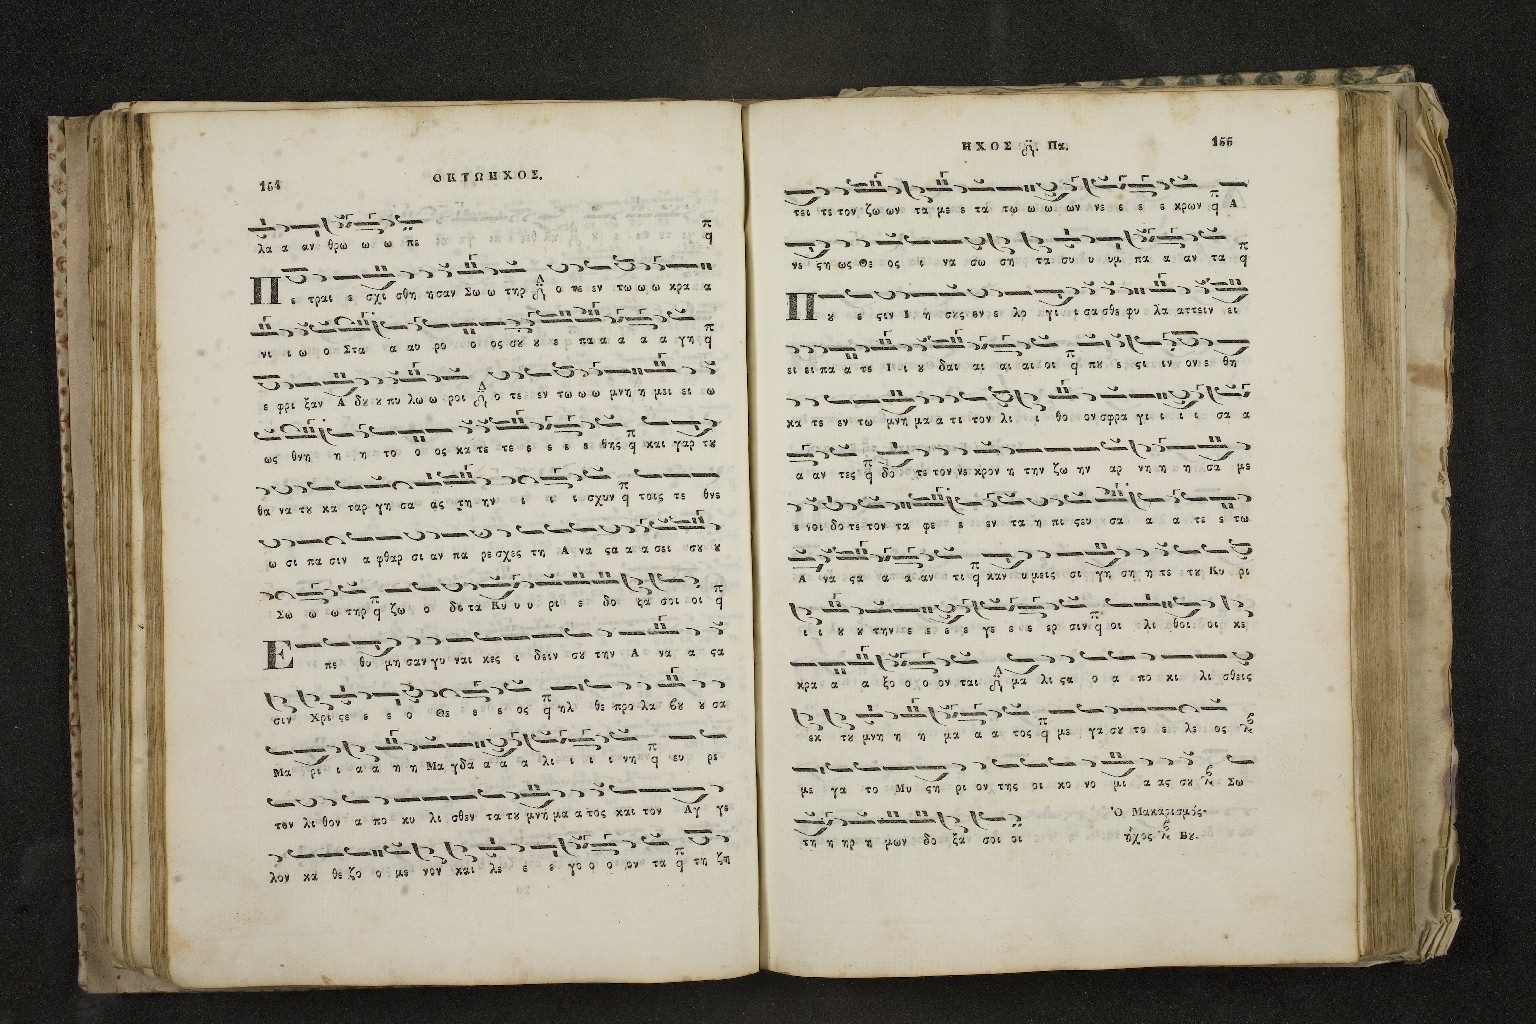 154
ΟΚΤΩΗΧΟΣ.
λα α αν θρω ω ω πε
Π ε τραι ε σχι σθη ησαν Σω ω τηρ ο τε εν τω ω ω κρα α
νι ι ω ο Στα α αυ ρο ο ος σου ου ε πα α α α α γη
ε φρι ξαν Α δου ου πυ λω ω ροι ο τε εν τω ω ω μνη η μει ει ω
ως θνη η η το ο ος κα τε τε ε ε ε ε θης και γαρ του
θα να του κα ταρ γη σα ας τη ην ι ι ι σχυν τοις τε θνε
ω σι πα σιν α φθαρ σι αν πα ρε σχες τη Α να ϛα α α σει σου ου
Σω ω ω τηρ ζω ο δο τα Κυ υ υ ρι ε δο ξα σοι οι
Ε πε θυ μη σαν γυ ναι κες ι δειν σου την Α να α ϛα
σιν Χρι ϛε ε ε ο Θε ε ε ος ηλ θε προ λα βου ου σα
Μα ρι ι α α η η Μα γδα α α α λι ι ι ι νη ευ ρε
τον λι θον α πο κυ λι σθεν τα του μνη μα α τος και τον Αγ γε
λον κα θε ζο ο με νον και λε ε ε γο ο ο ον τα τη ζη
ΗΧΟΣ Πα.
155
τει τε τον ζω ων τα με ε τα τω ω ω ων νε ε ε ε κρων Α
νε ϛη ως Θε ος ι να σω ση τα συ υ υμ πα α αν τα
Π ου ε ϛιν Ι η σους εν ε λο γι ι σα σθε φυ λα αττειν ει
ει ει πα α τε Ι ι ου δαι αι αι αι οι που ε ϛι ιν ον ε θη
κα τε εν τω μνη μα α τι τον λι ι θο ον σφρα γι ι ι ι σα α
α αν τες δο τε τον νε κρον η την ζω ην αρ νη η η σα με
ε νοι δο τε τον τα φε ε εν τα η πι ϛευ σα α α τε ε τω
Α να ϛα α α αν τι καν υ μεις σι γη ση η τε του Κυ ρι
ι ι ου ου την ε ε ε ε γε ε ε ερ σιν οι λι θοι οι κε
κρα α α ξο ο ο ον ται μα λι ϛα ο α πο κυ λι σθεις
εκ του μνη η η μα α α τος με γα σου το ε λε ος
με γα το Μυ ϛη ρι ον της οι κο νο μι α ας σου Σω
τη η ηρ η μων δο ξα σοι οι
Ὁ Μακαρισμός.
ἦχος Βου.